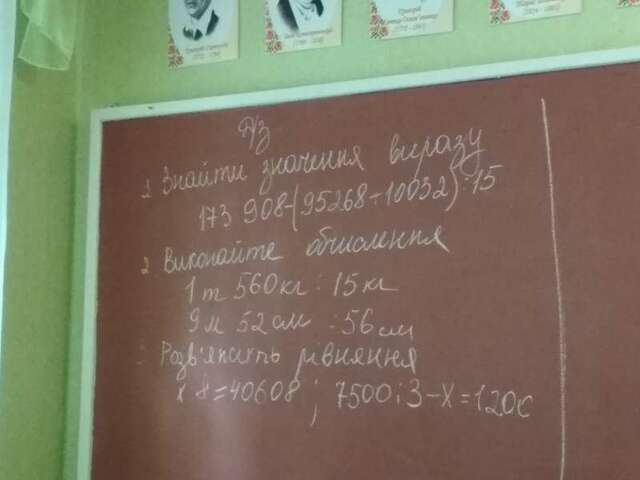 Д/З
1. Знайти значення виразу
173 908-(95268+10032):15
2. Виконайте обчислення
1 т 560кг : 15кг
9 м 52см : 56см
Розв'яжіть рівняння
x 8=40608 ; 7500:3-x=1200